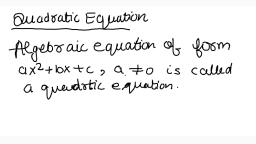 Quadratic Equation
Algebraic equation of form
ax²+bx+c, a ≠ 0 is called
a quadrtic equation.